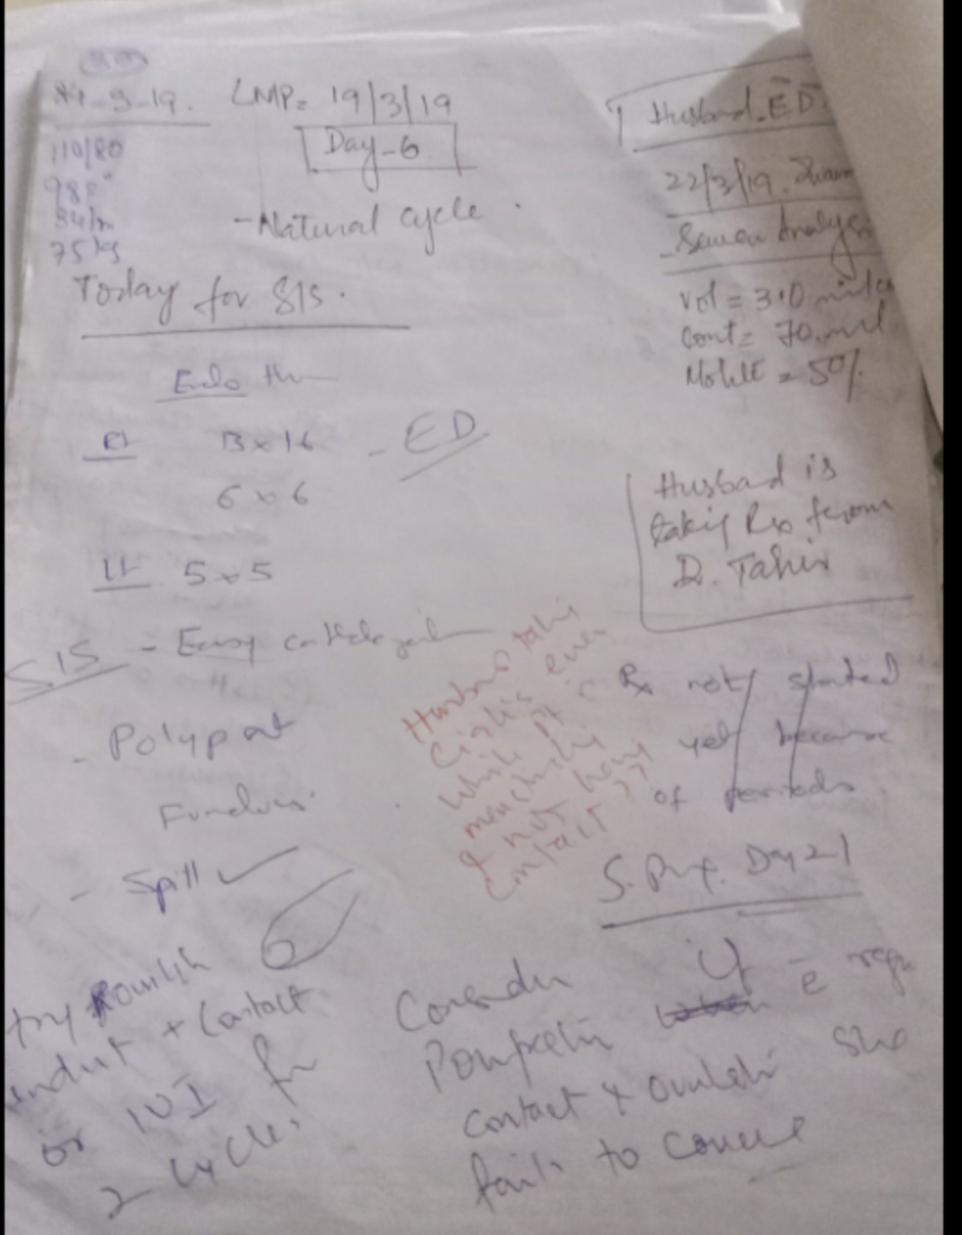 LMP= 19/3/19
Day-6
- Natural cycle.
110/80
98F°
84/m
75kg
Today for SIS.
Endo
Rt 13x16 - ED
6x6
Lt 5x5
SIS - Easy
- Polyp at
Fundus.
- Spill ✓
try
induct + Contact
or IUI for
2 cycles.
Husband - ED
22/3/19.
- Semen Analysis
Vol = 3.0
Count = 70 mil
Motile = 50%
Husband is
taking Rx from
D. Tahir
Husband taking
Cialis even
while pt
menstruating
& not having
contact ??
Rx not started
yet because
of periods
S. Prg. Day 21
Consider if
Polypectomy
contact & ovulation she
fails to conceive